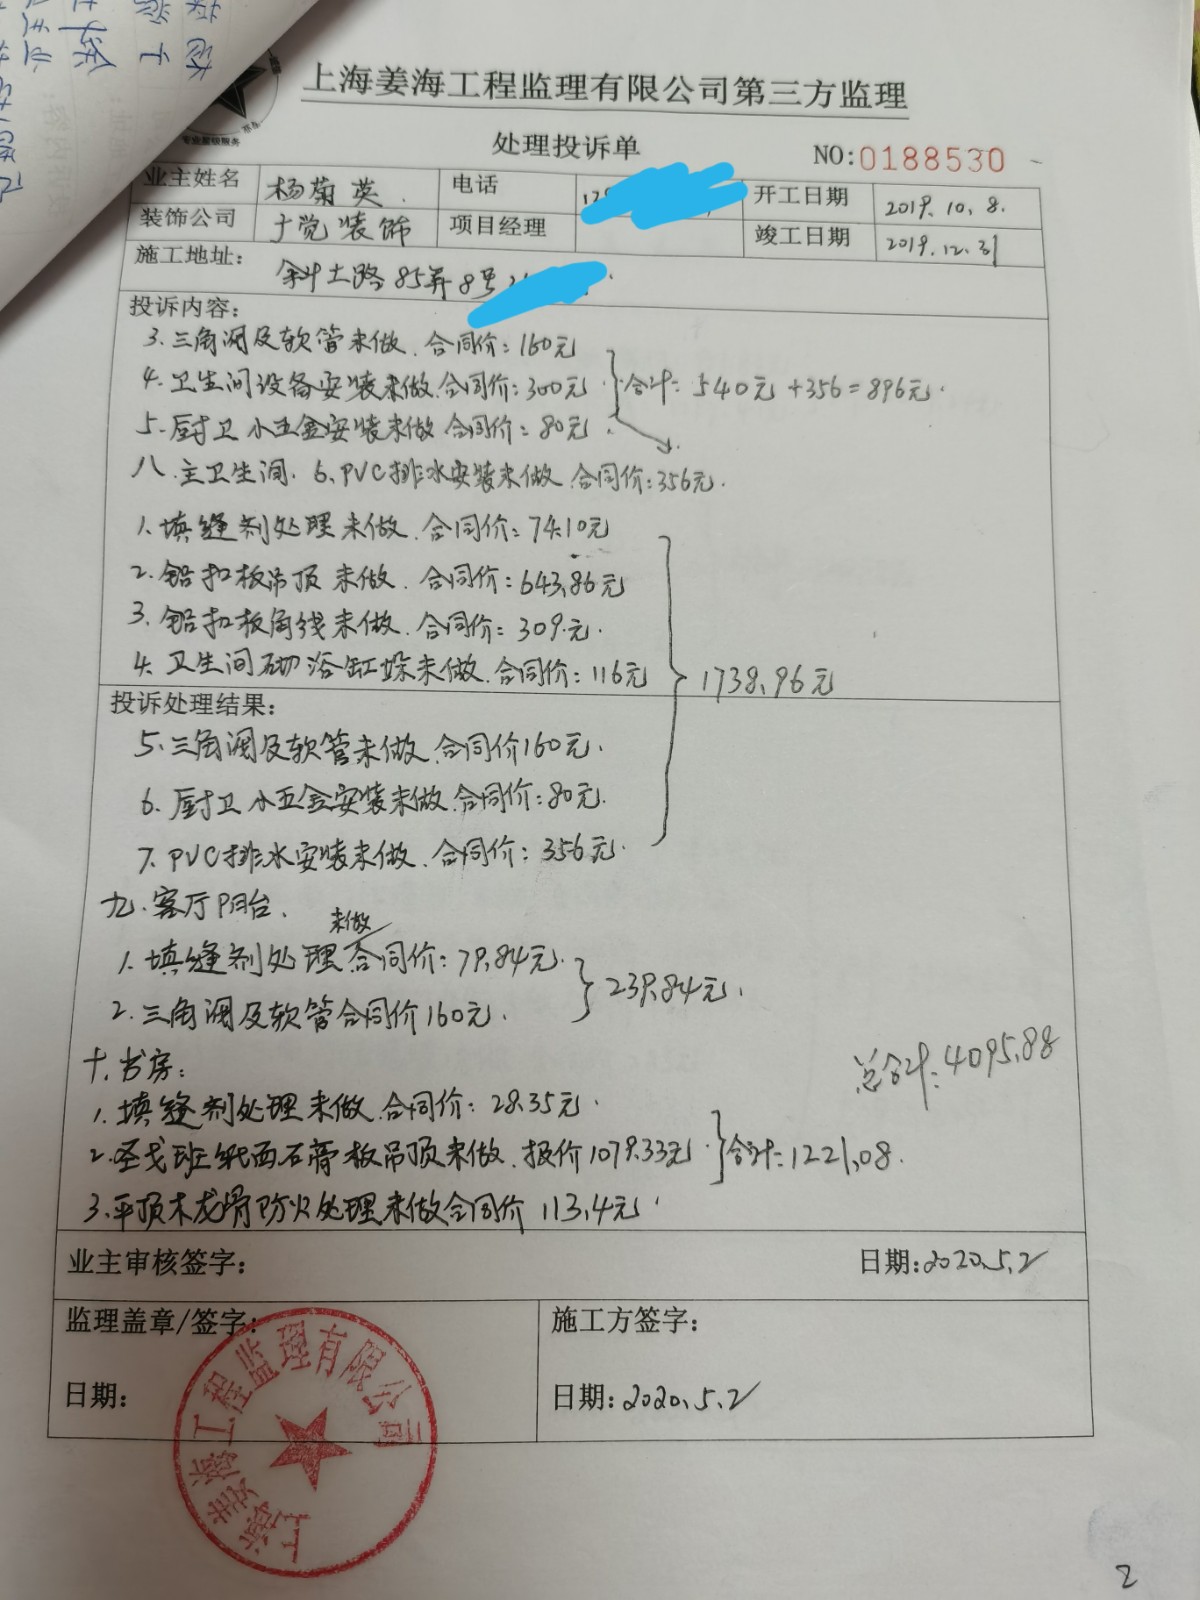 上海姜海工程监理有限公司第三方监理
处理投诉单
NO:0188530
专业星级服务
业主姓名 杨菊英 电话 开工日期 2019.10.8.
装饰公司 十觉装饰 项目经理 竣工日期 2019.12.31
施工地址: 斜土路85弄8号
投诉内容:
3.三角阀及软管未做.合同价:160元
4.卫生间设备安装未做.合同价:300元. 合计:540元+356=896元.
5.厨卫小五金安装未做 合同价:80元.
八.主卫生间. 6、PVC排水安装未做.合同价:356元.
1.填缝剂处理未做.合同价:74.10元
2.铝扣板吊顶未做.合同价:643.86元
3.铝扣板角线未做.合同价:309.元.
4.卫生间砌浴缸垛未做.合同价:116元 1738.96元
投诉处理结果:
5.三角阀及软管未做.合同价160元.
6.厨卫小五金安装未做.合同价:80元.
7.PVC排水安装未做.合同价:356元.
九.客厅阳台.
未做
1.填缝剂处理合同价:79.84元. 239.84元.
2.三角阀及软管合同价160元.
总合计:4095.88
十.书房:
1.填缝剂处理未做.合同价:28.35元.
2.圣戈班纸面石膏板吊顶未做.报价1079.33元. 合计:1221.08.
3.平顶木龙骨防火处理未做合同价113.4元.
业主审核签字: 日期:2020.5.2
监理盖章/签字: 施工方签字:
日期: 日期:2020.5.2
上海姜海工程监理有限公司
2